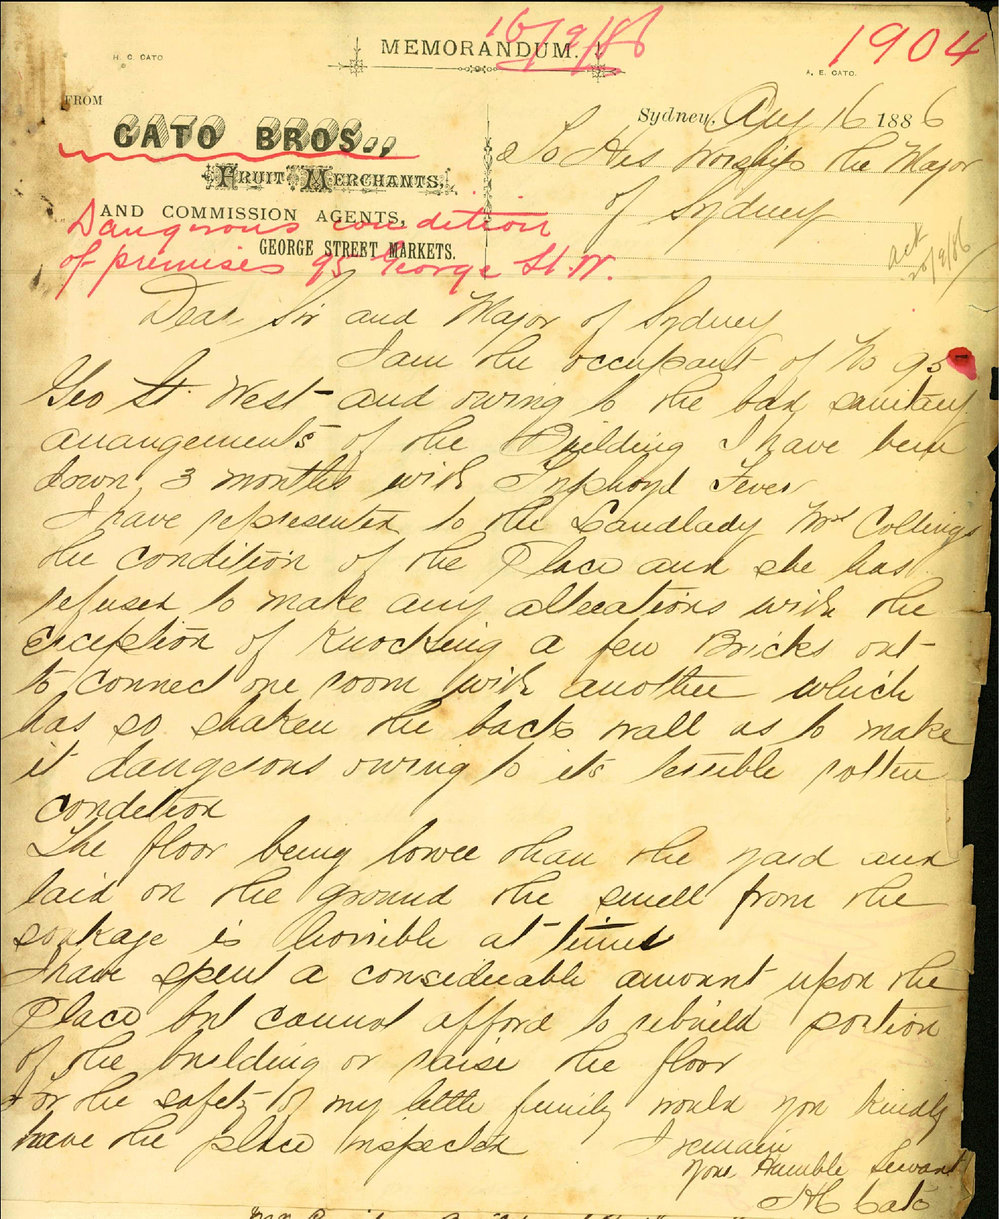 16/9/86
1904
MEMORANDUM.
H. C. CATO
A. E. CATO.
FROM
Sydney, Aug 16 1886
CATO BROS.,
To His Worship the Mayor
of Sydney
FRUIT MERCHANTS,
AND COMMISSION AGENTS,
GEORGE STREET MARKETS.
Dangerous condition
of premises 95 George St. W.
Dear Sir and Mayor of Sydney
I am the occupant of No 95
Geo St. West and owing to the bad sanitary
arrangements of the Building I have been
down 3 months with Typhoyd Fever
I have represented to the Landlady Mrs Collings
the condition of the Place and she has
refused to make any alterations with the
exception of Knocking a few Bricks out
to connect one room with another which
has so shaken the back wall as to make
it dangerous owing to its terrible rotten
condition
The floor being lower than the yard and
laid on the ground the smell from the
soakage is horrible at times
I have spent a considerable amount upon the
Place but cannot afford to rebuild portion
of the building or raise the floor
For the safety of my little family would you kindly
have the place inspected
I remain
your Humble Servant
H C Cato